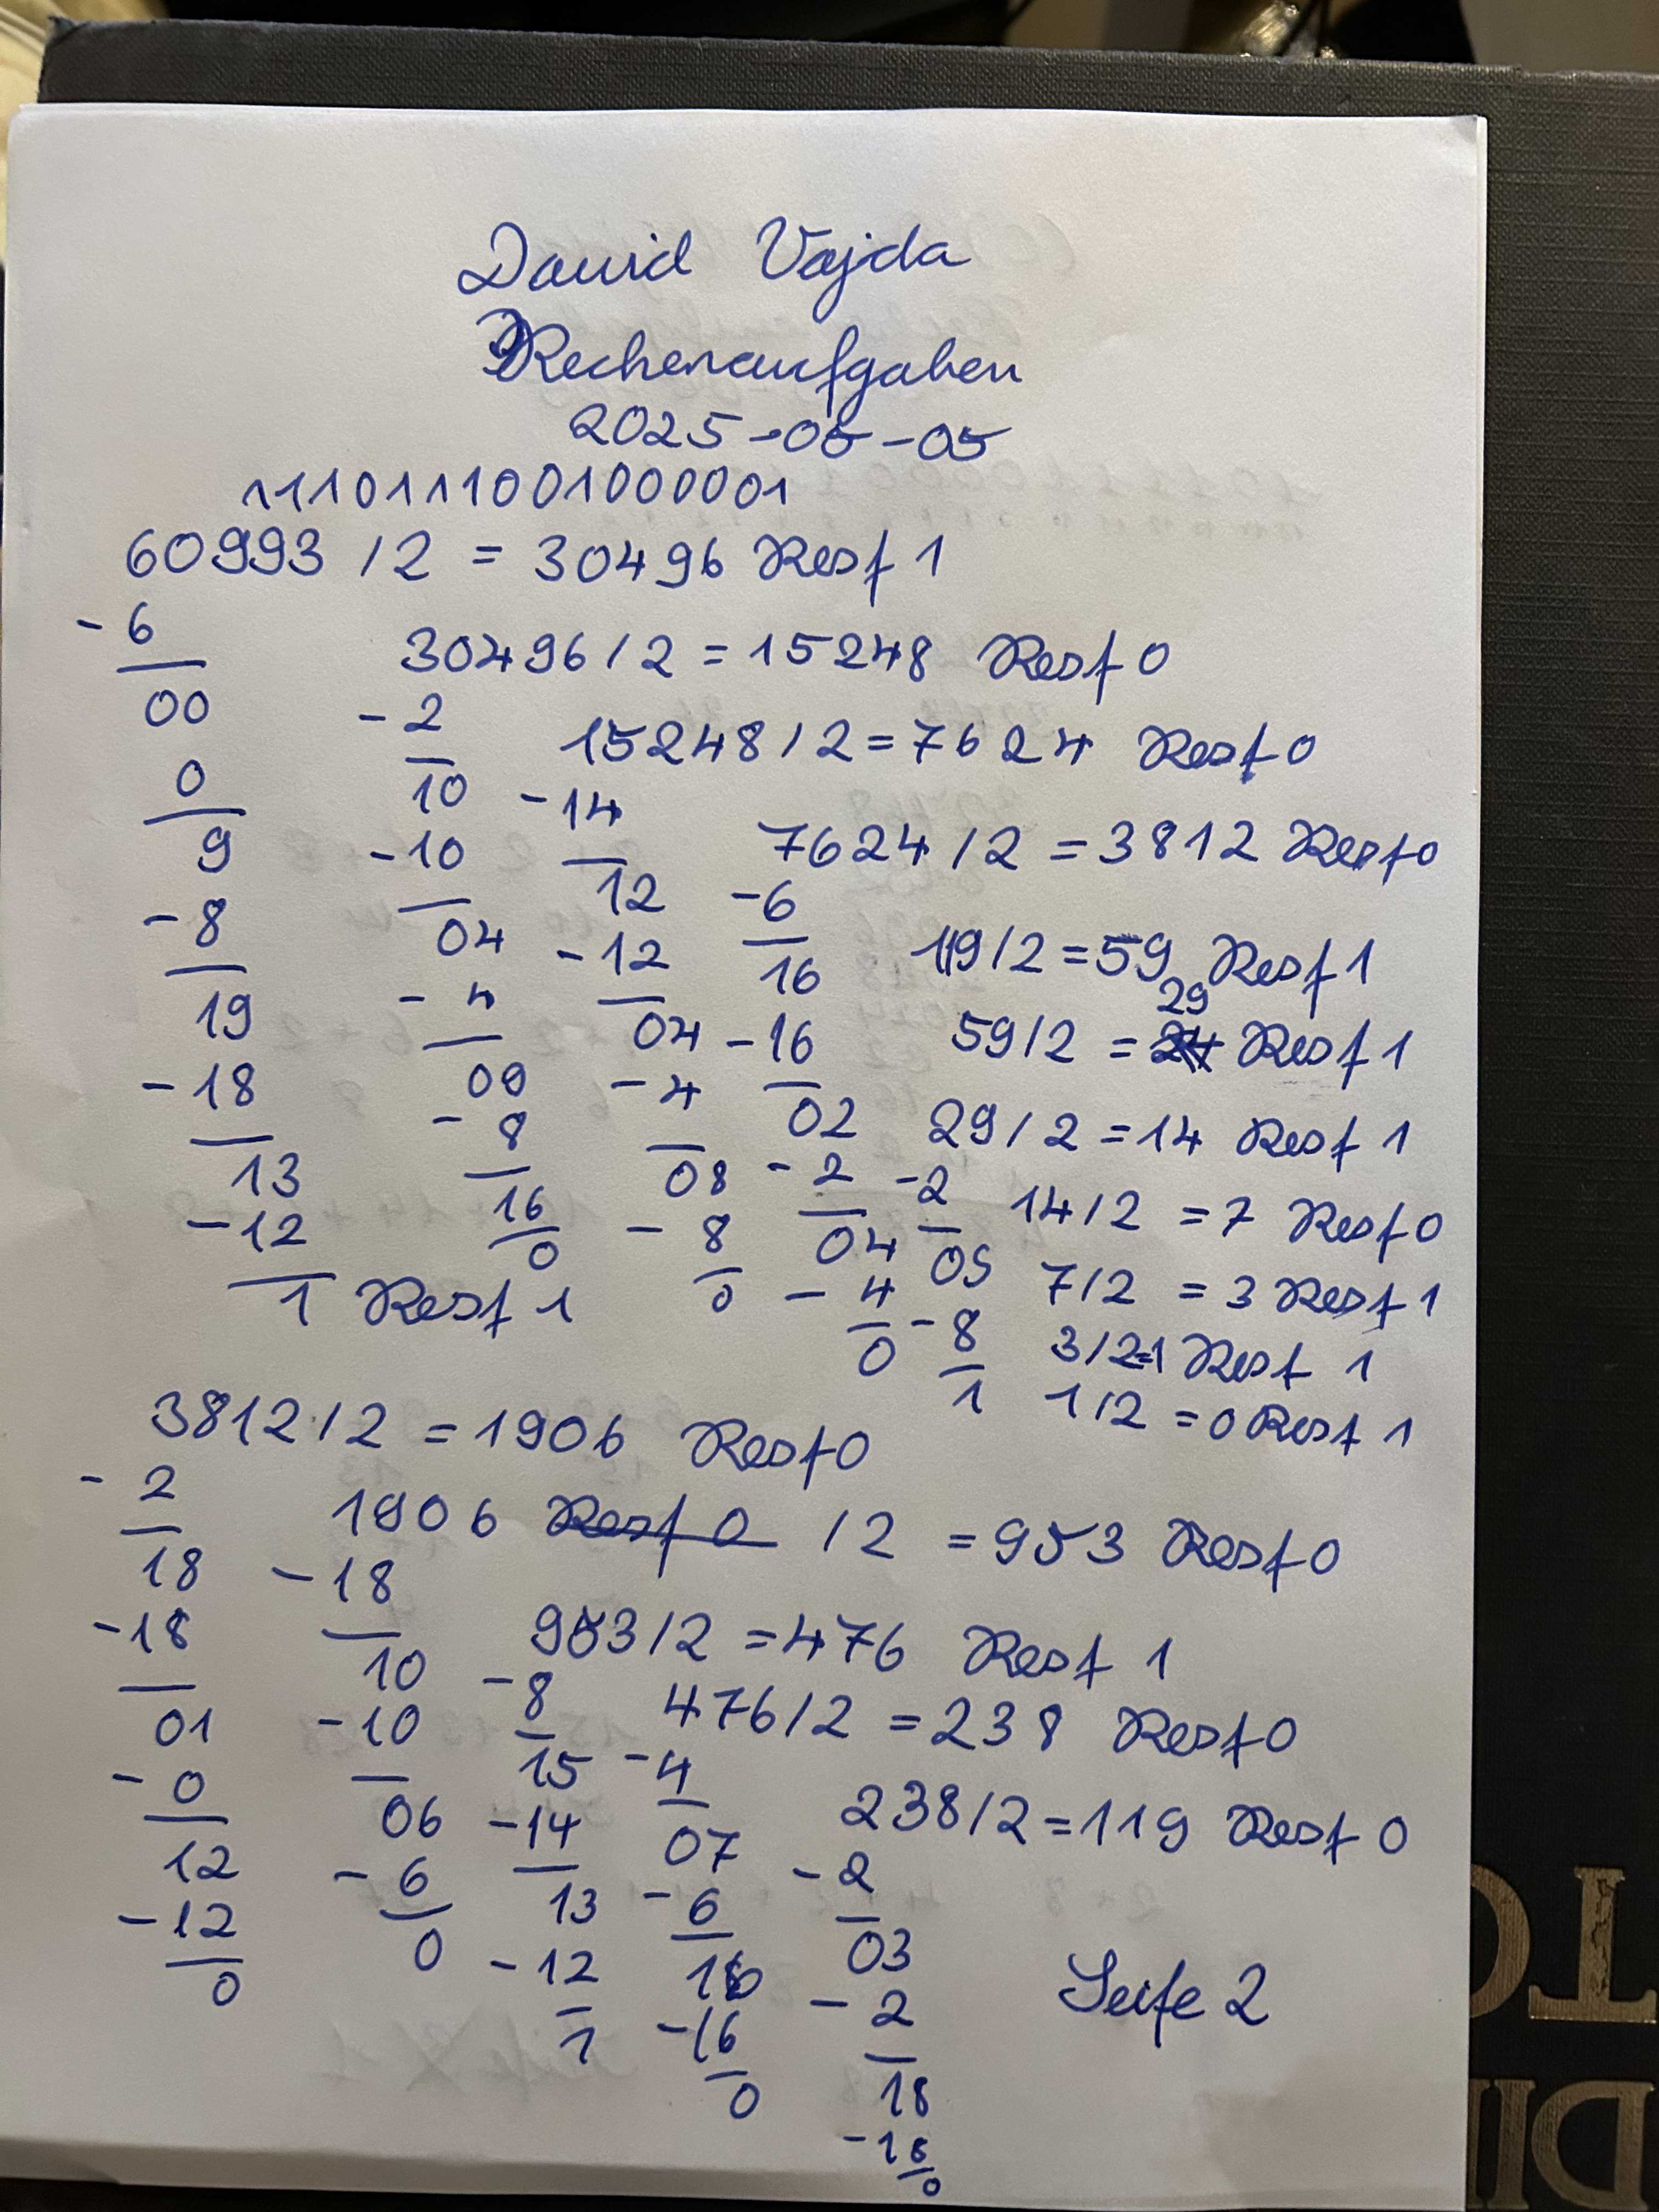 David Vajda
Rechenaufgaben
2025-05-05
1110111001000001
60993 / 2 = 30496 Rest 1
- 6
30496 / 2 = 15248 Rest 0
00 - 2
15248 / 2 = 7624 Rest 0
0 10 - 14
7624 / 2 = 3812 Rest 0
9 - 10 12 - 6
- 8 04 - 12 16 119 / 2 = 59 Rest 1
19 - 4 04 - 16 59 / 2 = 29 Rest 1
- 18 09 - 4 02 29 / 2 = 14 Rest 1
- 8
13 08 - 2 - 2
16 14 / 2 = 7 Rest 0
- 12 0 - 8 04 09
1 Rest 1 0 - 4 7 / 2 = 3 Rest 1
0 - 8 3 / 2 = 1 Rest 1
1 1 / 2 = 0 Rest 1
3812 / 2 = 1906 Rest 0
- 2
1906 Rest 0 / 2 = 953 Rest 0
18 - 18
- 18 953 / 2 = 476 Rest 1
10 - 8
01 - 10 476 / 2 = 238 Rest 0
- 0 15 - 4
06 - 14 238 / 2 = 119 Rest 0
12 07 - 2
- 6 13 - 6
- 12 0 03
0 - 12 16 - 2
1 - 16
0 18
- 18
0
Seite 2
TO
DII